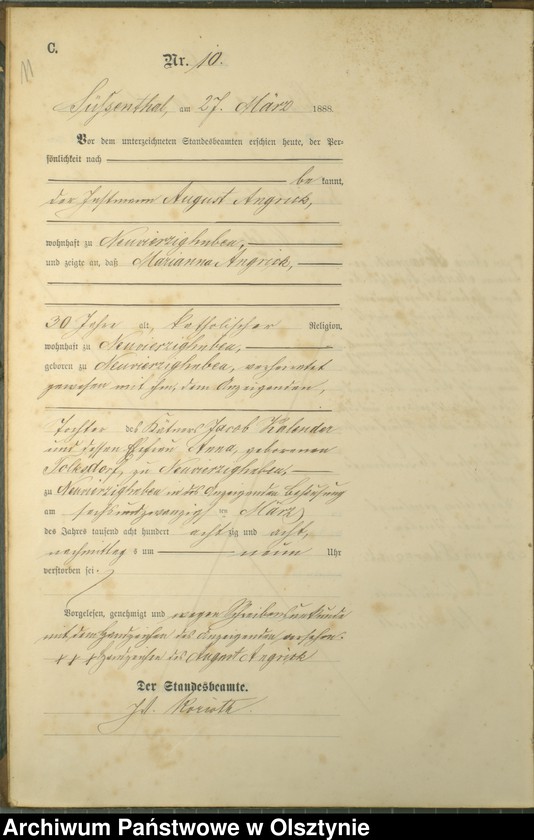 C.
11
Nr. 10.
Süssenthal, am 27. März 1888.
Vor dem unterzeichneten Standesbeamten erschien heute, der Per-
sönlichkeit nach
bekannt,
der Instmann August Angrick,
wohnhaft zu Neuvierzighuben,
und zeigte an, daß Marianna Angrick,
30 Jahre alt, katholischer Religion,
wohnhaft zu Neuvierzighuben,
geboren zu Neuvierzighuben, verheiratet
gewesen mit ihm, dem Anzeigenden,
Tochter des Kätners Jacob Kalender
und dessen Ehefrau Anna, geborenen
Tolksdorf, zu Neuvierzighuben,
zu Neuvierzighuben in des Anzeigenden Behausung
am sechsundzwanzig ten März
des Jahres tausend acht hundert achtzig und acht,
nachmittags um neun Uhr
verstorben sei.
Vorgelesen, genehmigt und wegen Schreibensunkunde
mit dem Handzeichen des Anzeigenden versehen.
+ + + Handzeichen des August Angrick
Der Standesbeamte.
Archiwum Państwowe w Olsztynie